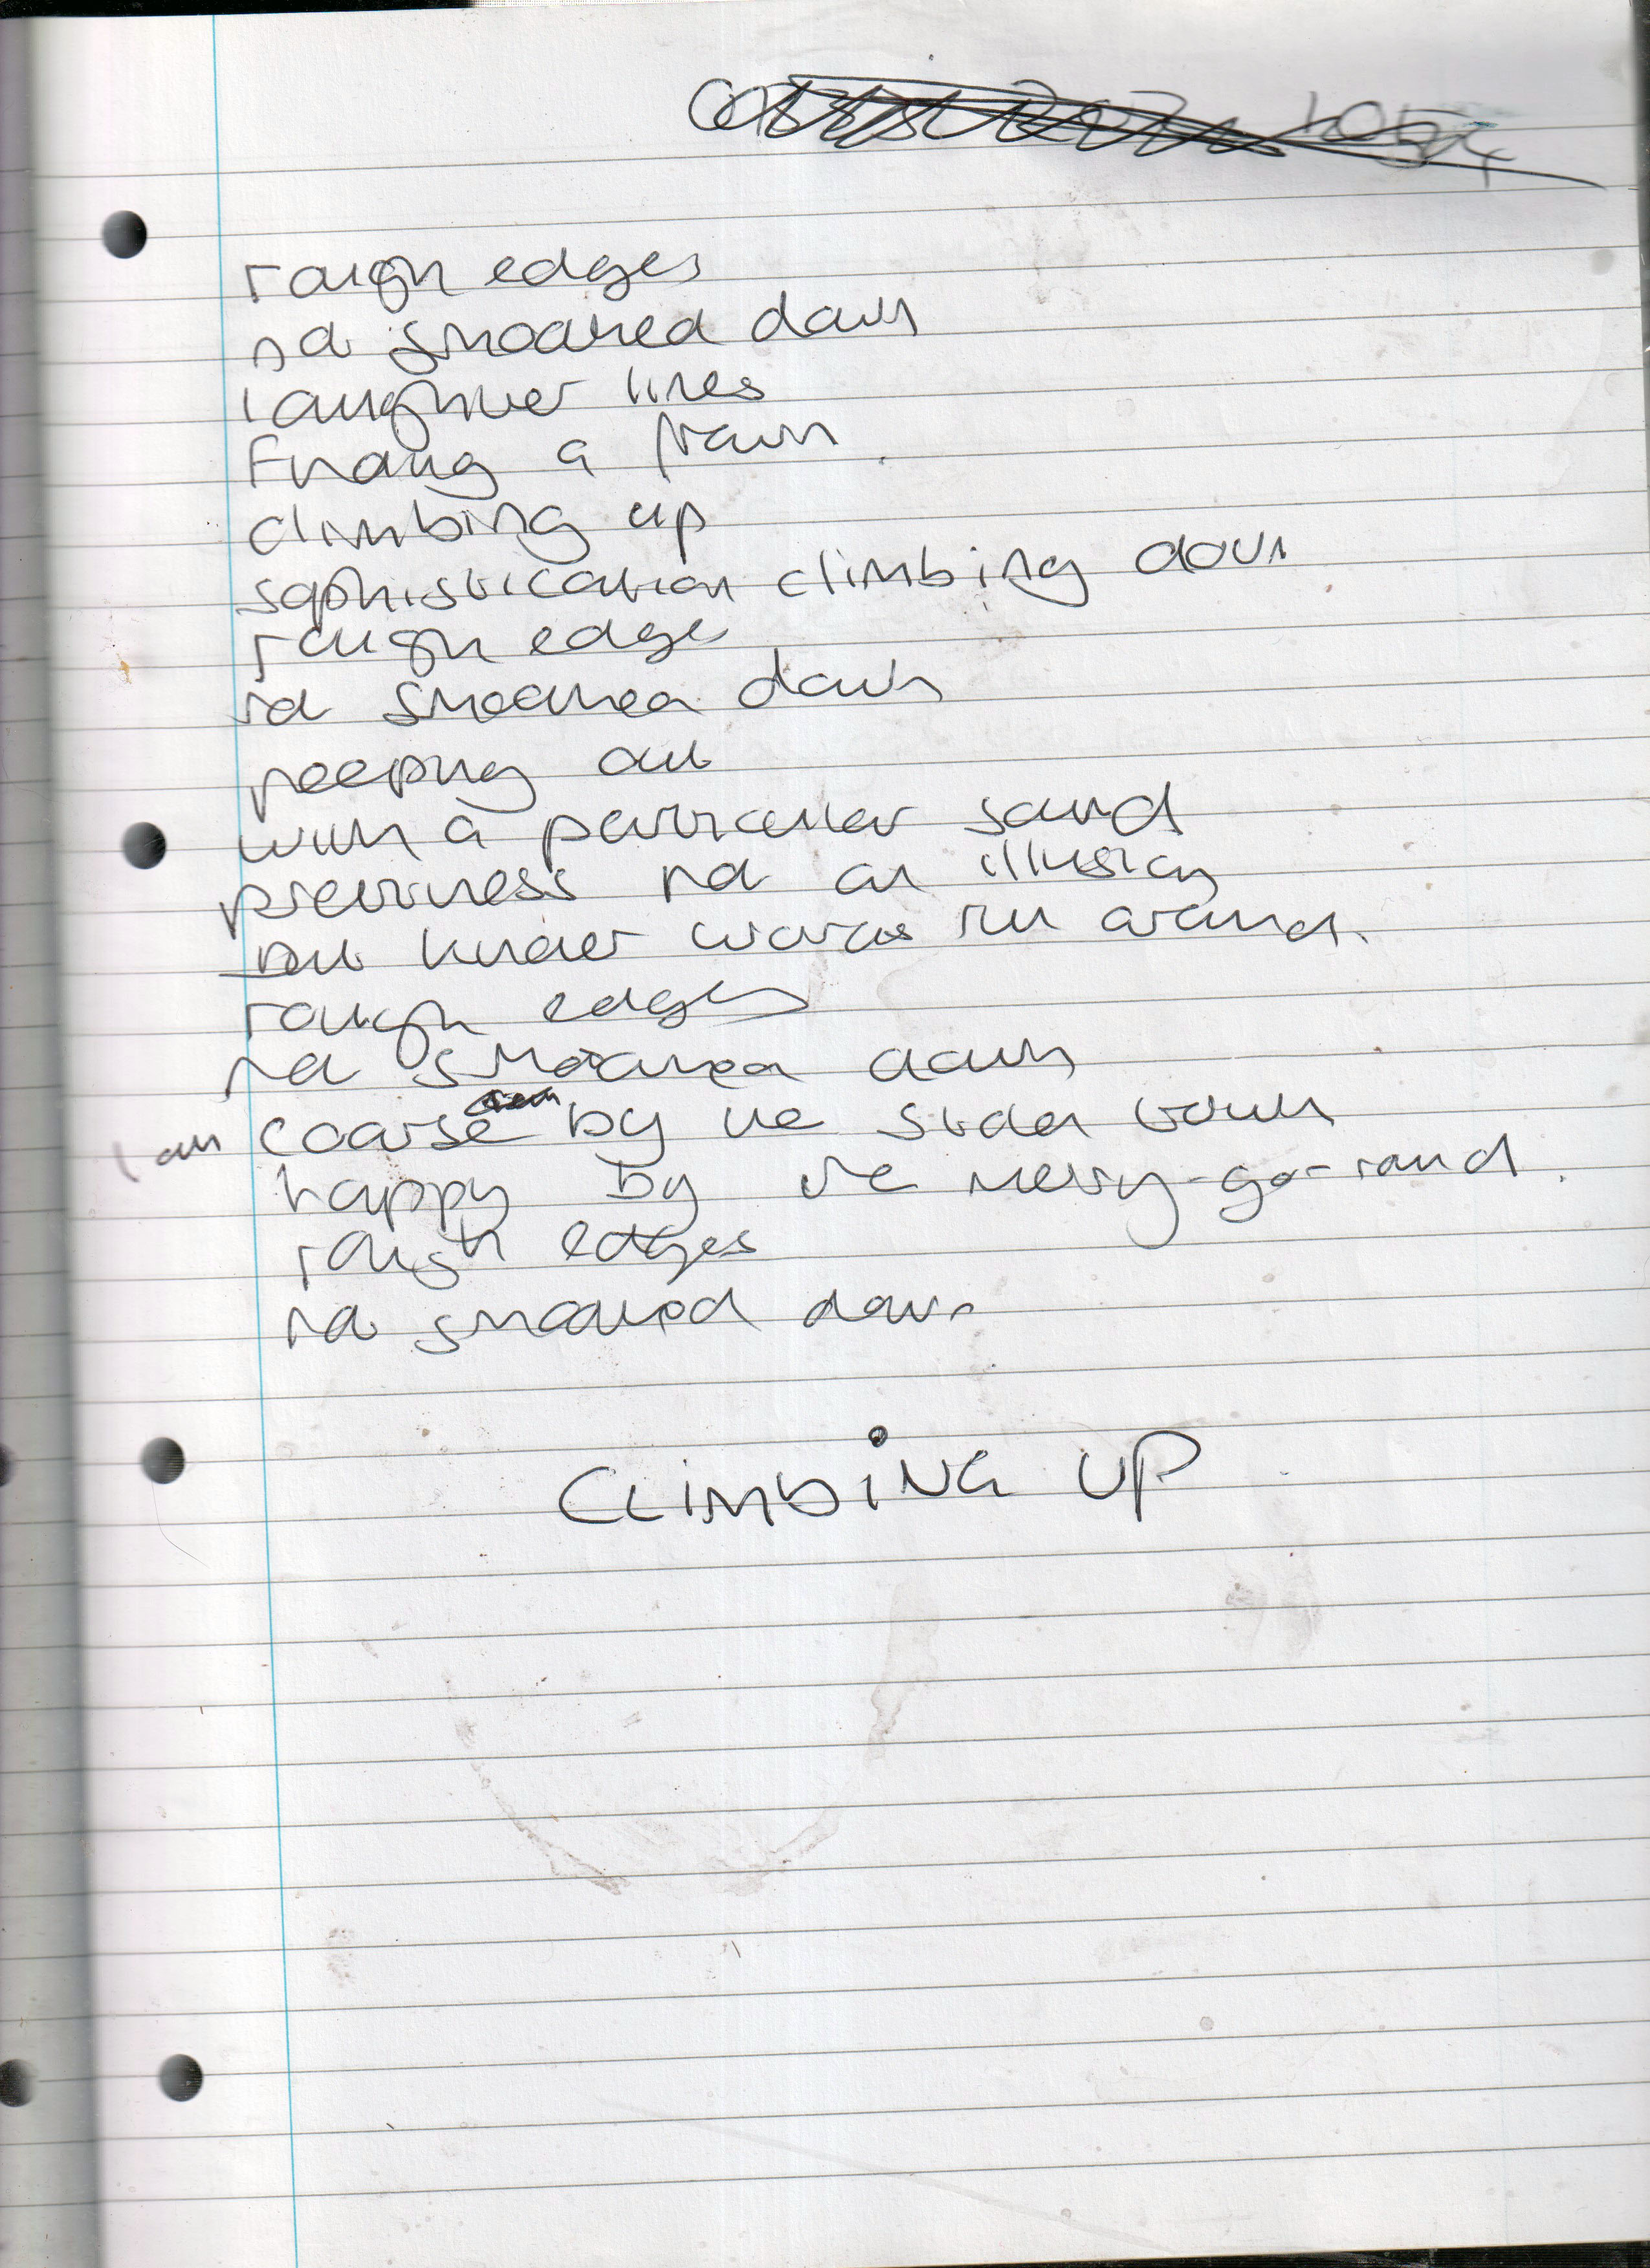 rough edges
not smoothed down
laughter lines
finding a frown
climbing up
sophistication climbing down
rough edges
not smoothed down
peeping out
with a particular sound
prettiness not an illusion
but kinder words run around.
rough edges
not smoothed down
I am coarse by the
happy by the merry-go-round.
rough edges
not smoothed down
CLIMBING UP